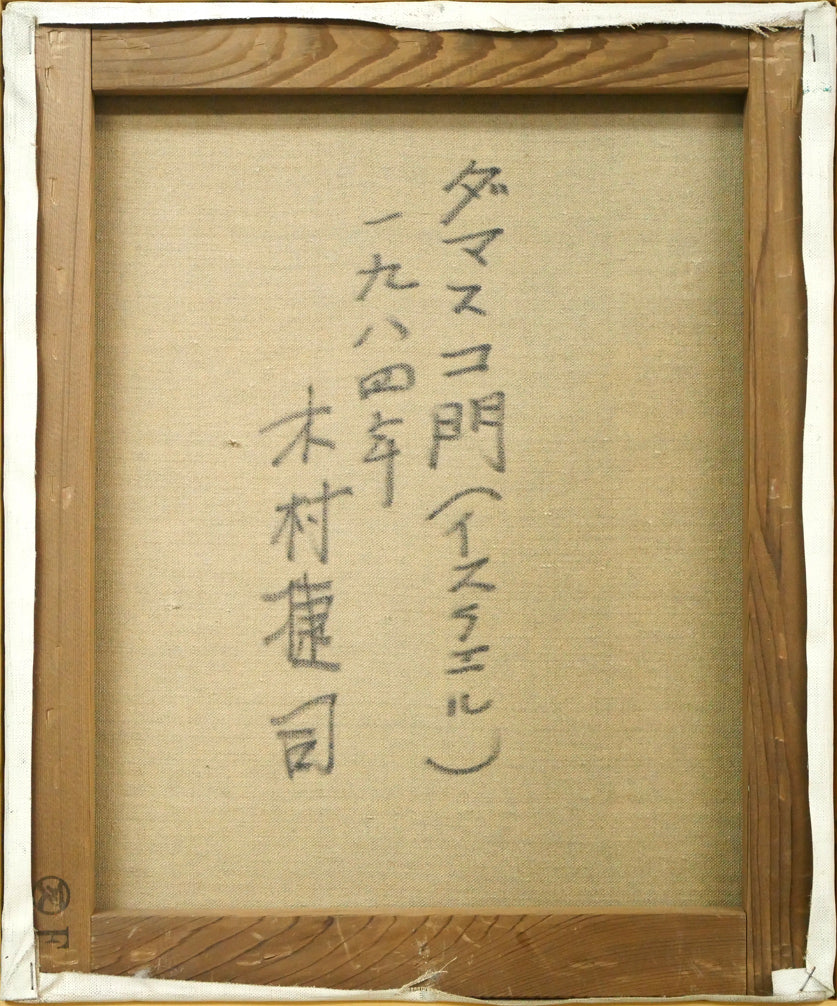 ダマスコ門(イスラエル)
一九八四年
木村捷司
F